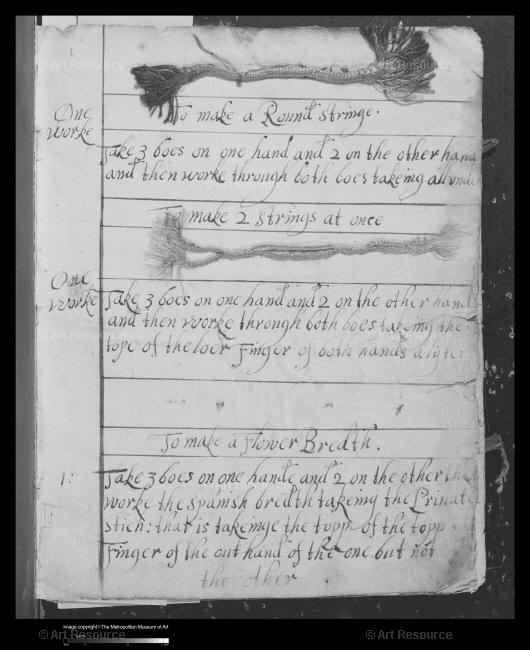 One
Worke
To make a Round stringe.
Take 3 boes on one hand and 2 on the other hand
and then worke through both boes takeing all under
To make 2 strings at once
One
Worke
Take 3 boes on one hand and 2 on the other hand
and then worke through both boes takeing the
tope of the loer Finger of both hands alyke:
To make a Flower Bredth.
1:
Take 3 boes on one hande and 2 on the other
worke the spanish bredth takeing the
stich: that is takeinge the topp of the topp
Finger of the out hand of the one but not
the other
Image copyright © The Metropolitan Museum of Art
© Art Resource
© Art Resource